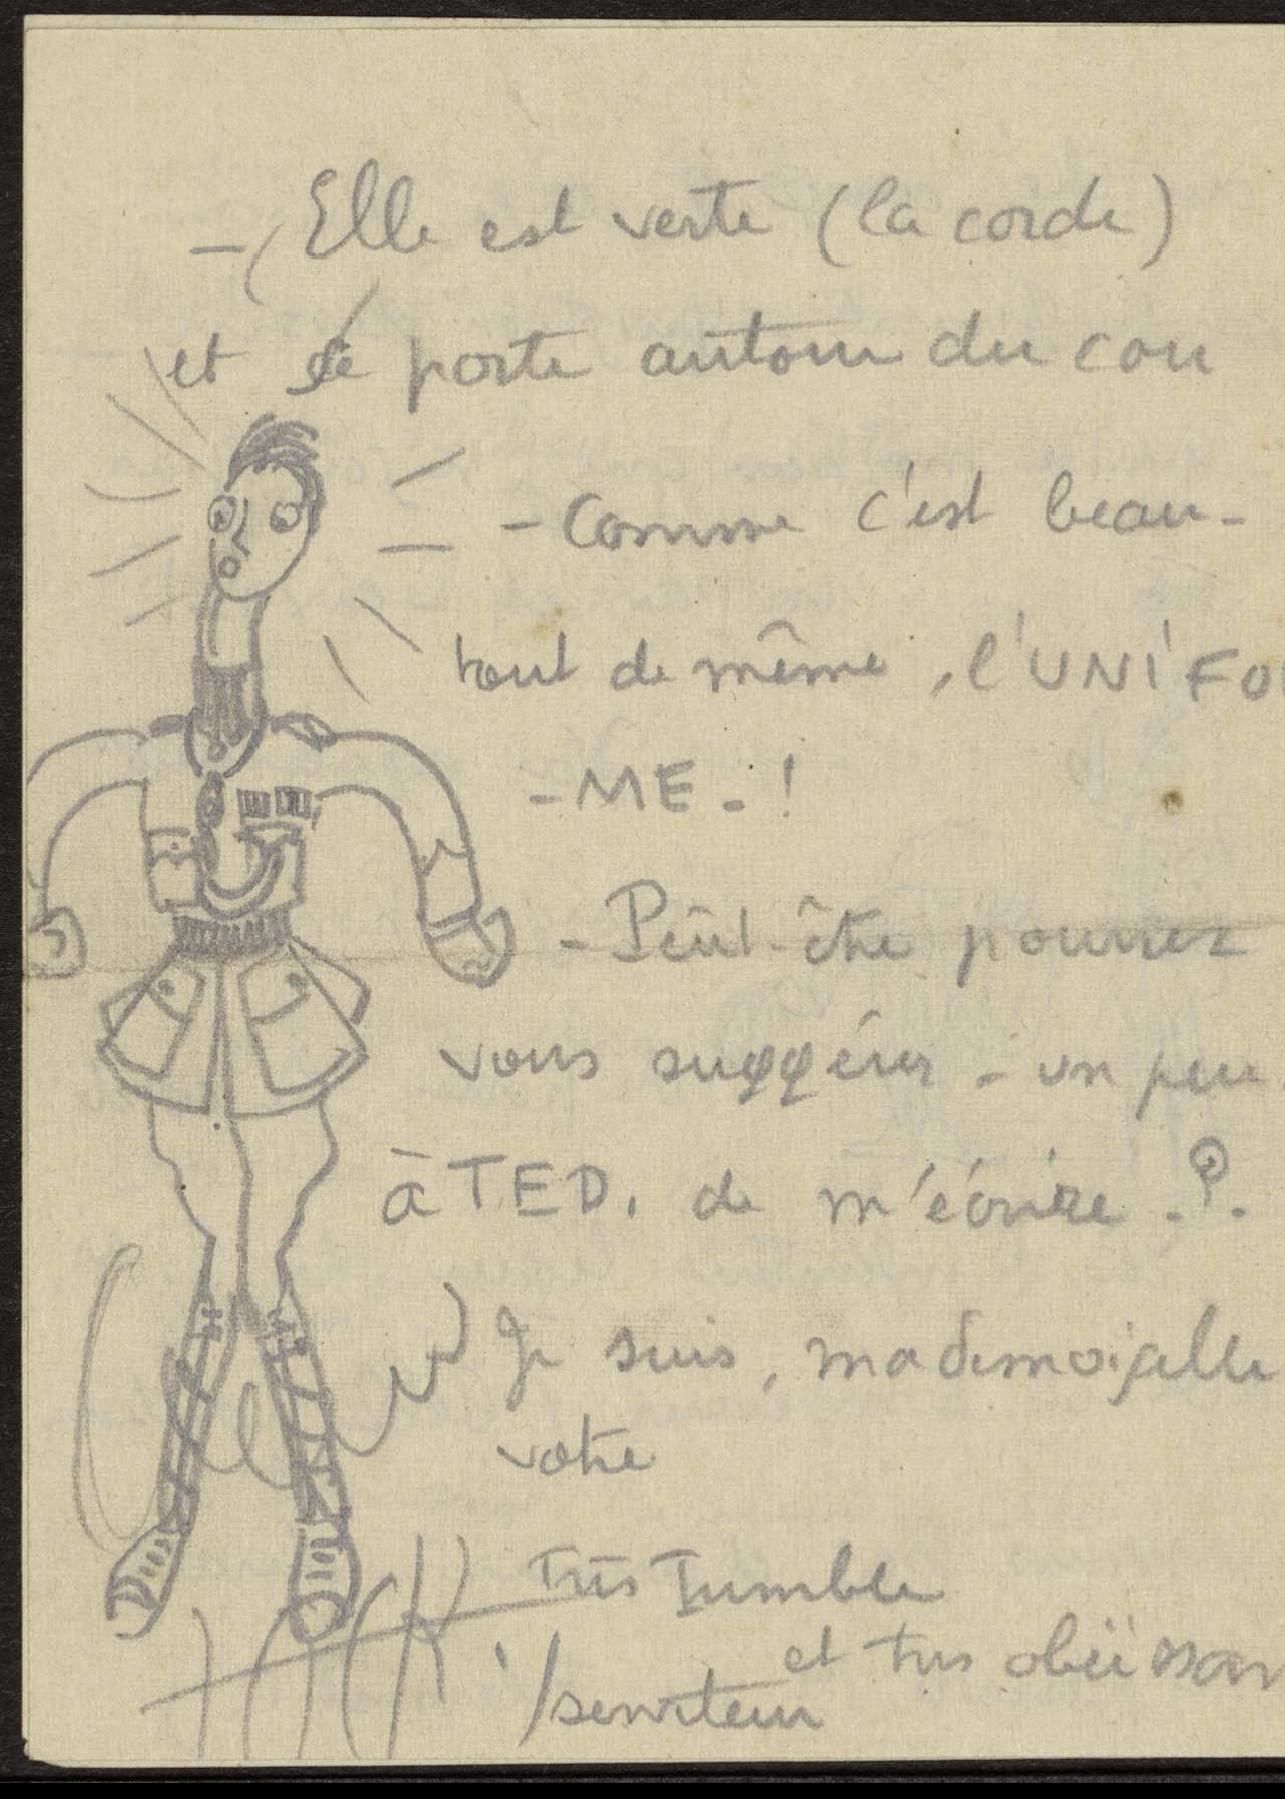 - Elle est verte (la corde)
et se porte autour du cou
- Comme c'est beau-
tout de même, l'UNIFO
- ME - !
- Peut-être pourrez
vous suggérer - un peu
à TED, de m'écrire - ? -
Je suis, mademoiselle
votre
très Iumble
et très obéissan
serviteur